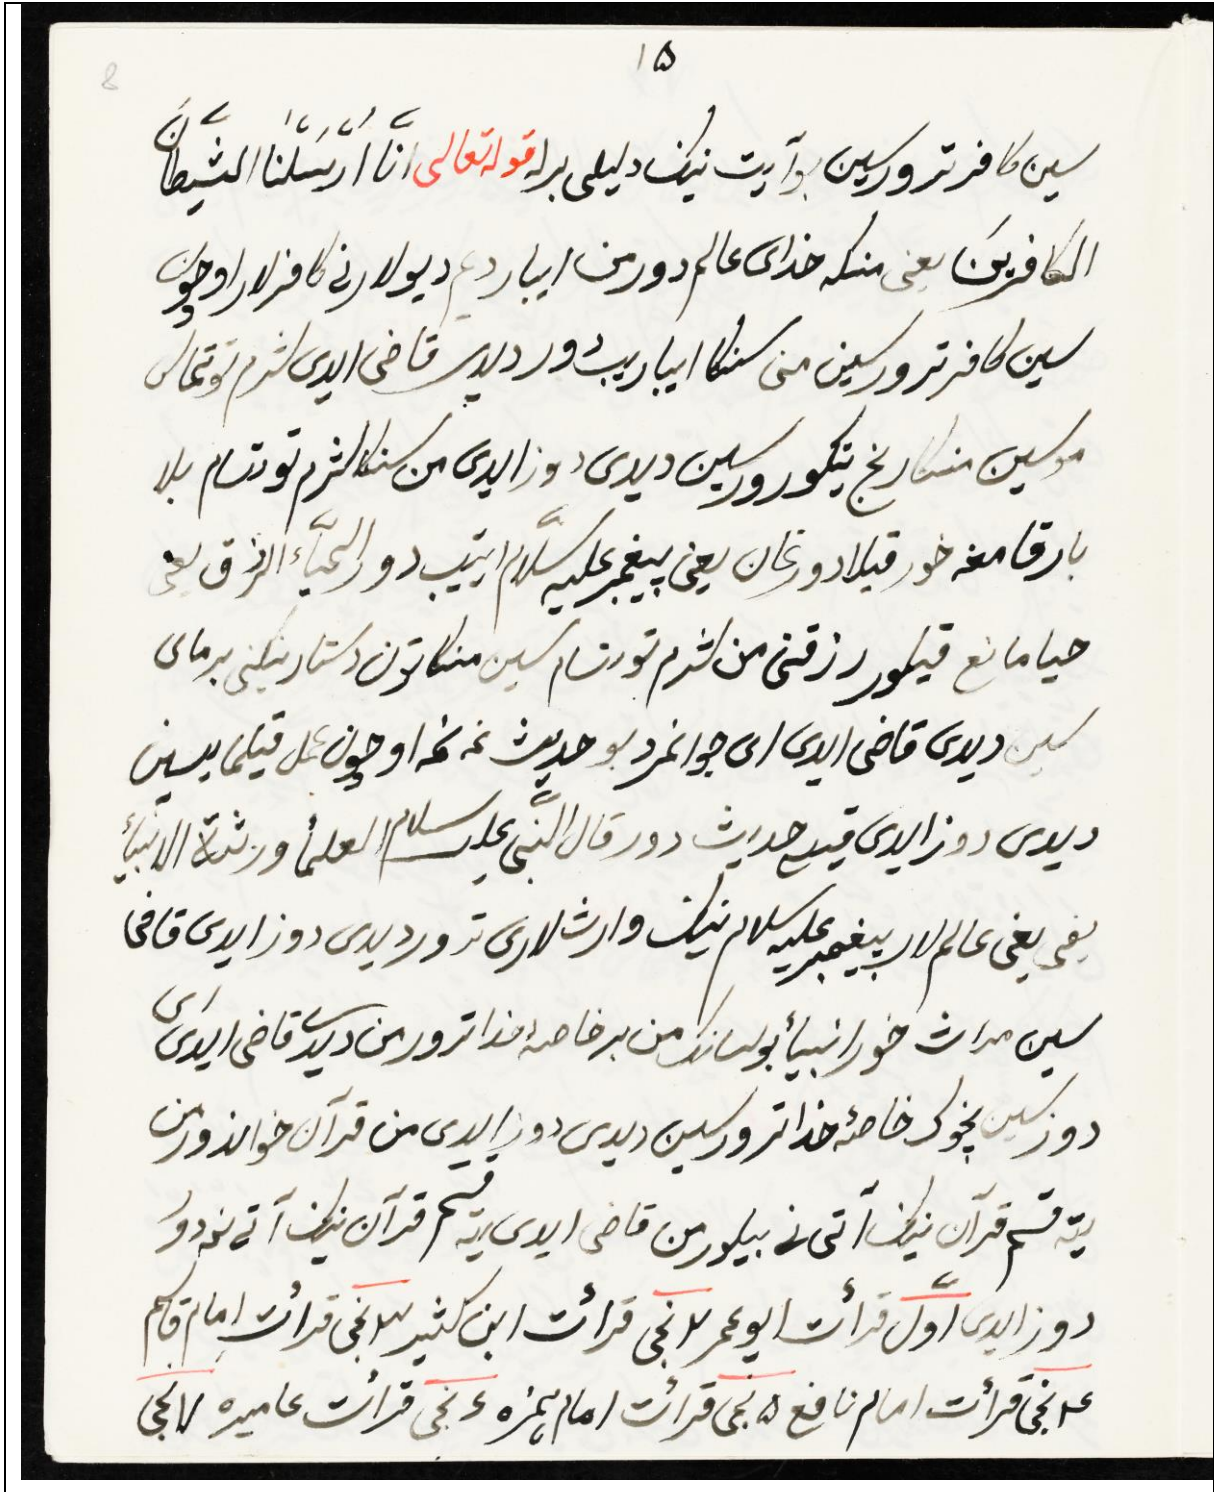 ۱۵
8
سین کافر ترور سین بو آیت نینک دلیلی برله قوله تعالی انّا اَرْسَلْنا الشّیطانَ
الکافرین یعنی منکه خدای عالم دور من ایباردیم دیولارنی کافرلار اوچون
سین کافر ترور سین منی سنکا ایباریب دور دیدی قاضی ایدی شرم توتمای
مو سین منکا رنج یتکورور سین دیدی دوز ایدی من سنکا شرم توتسام بلا
بارقامغه خور قیلادورغان یعنی پیغمبر علیه سّلام ایتیب دور الحیاء الرزق یعنی
حیا مانع قیلور رزقنی من شرم توتسام سین منکا تون دستارینکنی برمای
سین دیدی قاضی ایدی ای جوانمرد بو حدیث غه نمه اوچون عمل قیلمایسین
دیدی دوز ایدی قیسی حدیث دور قال النّبی علیه سلام العلمأ ورثة الانبیأ
یعنی یعنی عالم لار پیغمبر علیه سلام نینک وارث لاری ترور دیدی دوز ایدی قاضی
سین میراث خور انبیأ بولسانک من بر خاصهٔ خدا ترور من دیدی قاضی ایدی ای
دوز سین نچوک خاصهٔ خدا ترور سین دیدی دوز ایدی من قرآن خواندور من
یته قسم قرآن نینک آتی نی بیلور من قاضی ایدی یته قسم قرآن نینک آتی نمه دور
دوز ایدی اوّل قرأت ابو عمر ۲ نجی قرائت ابن کثیر ۳ نجی قرائت امام قاسم
۴ نجی قرائت امام نافع ۵ نجی قرائت امام همزه ۶ نجی قرائت عامیره ۷ نجی